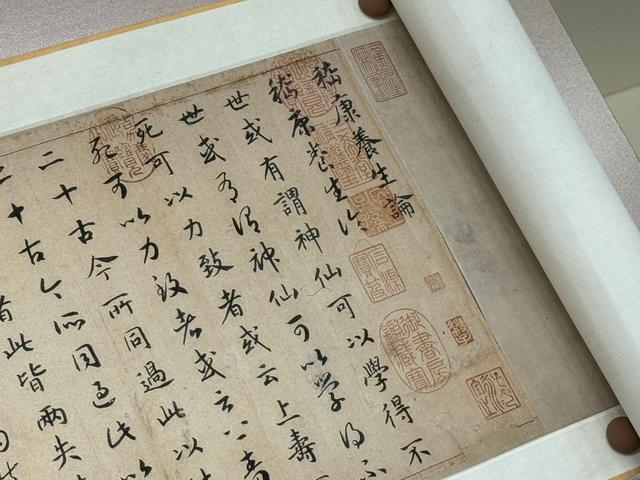 嵇康養生論
嵇康養生論
世或有謂神仙可以學得不
世或有謂神仙可以學得不
死可以力致者或云上壽
死可以力致者或云上壽
二十古今所同過此以
二十古今所同過此以
此皆兩失